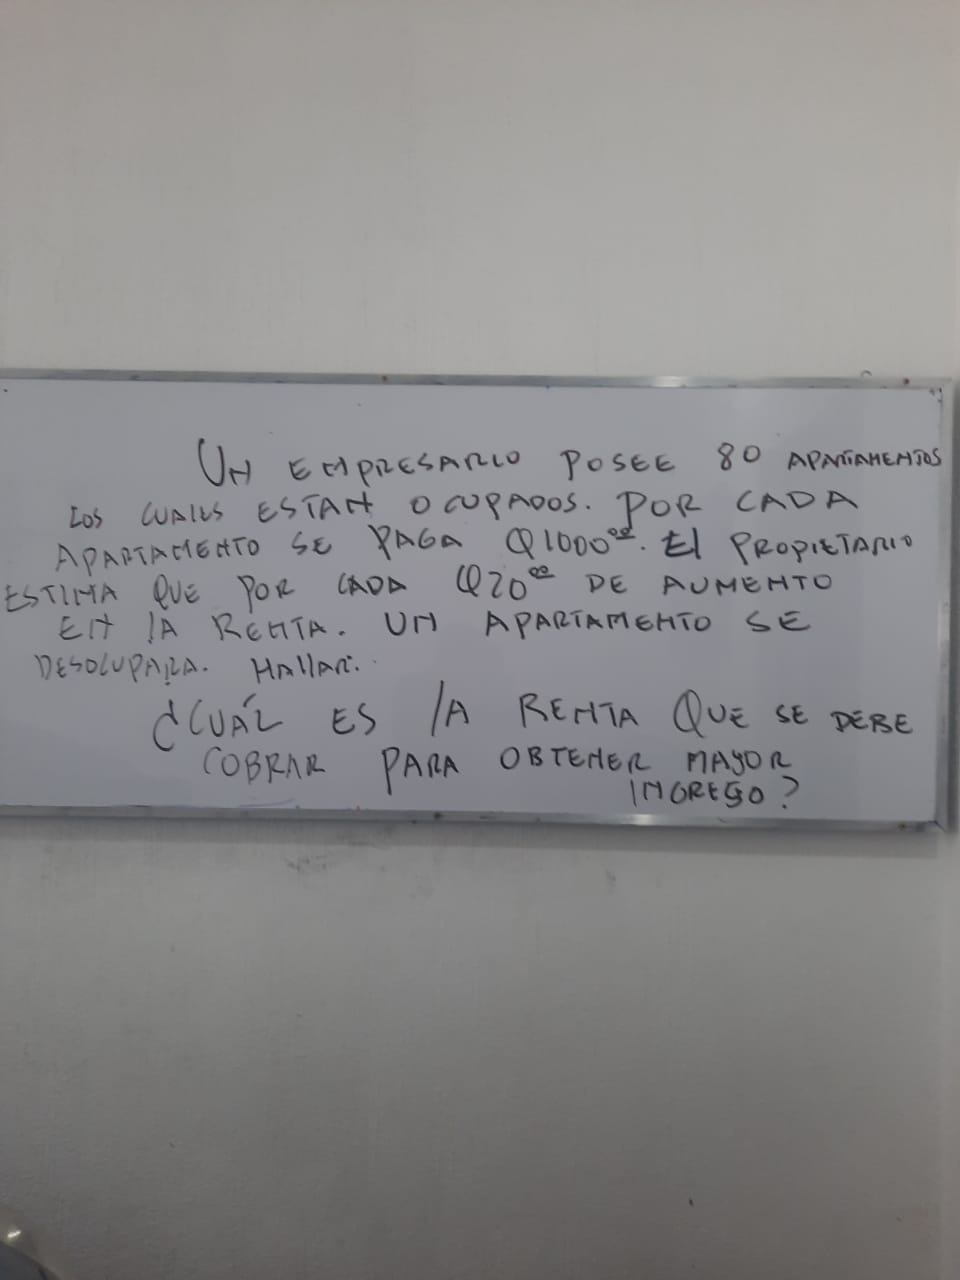 UN EMPRESARIO POSEE 80 APARTAMENTOS
LOS CUALES ESTAN OCUPADOS. POR CADA
APARTAMENTO SE PAGA Q1000.00. El PROPIETARIO
ESTIMA QUE POR CADA Q20.00 DE AUMENTO
EN lA RENTA. UN APARTAMENTO SE
DESOCUPARA. HAllAR.
¿CUÁL ES lA RENTA QUE SE DEBE
COBRAR PARA OBTENER MAYOR
INGRESO?